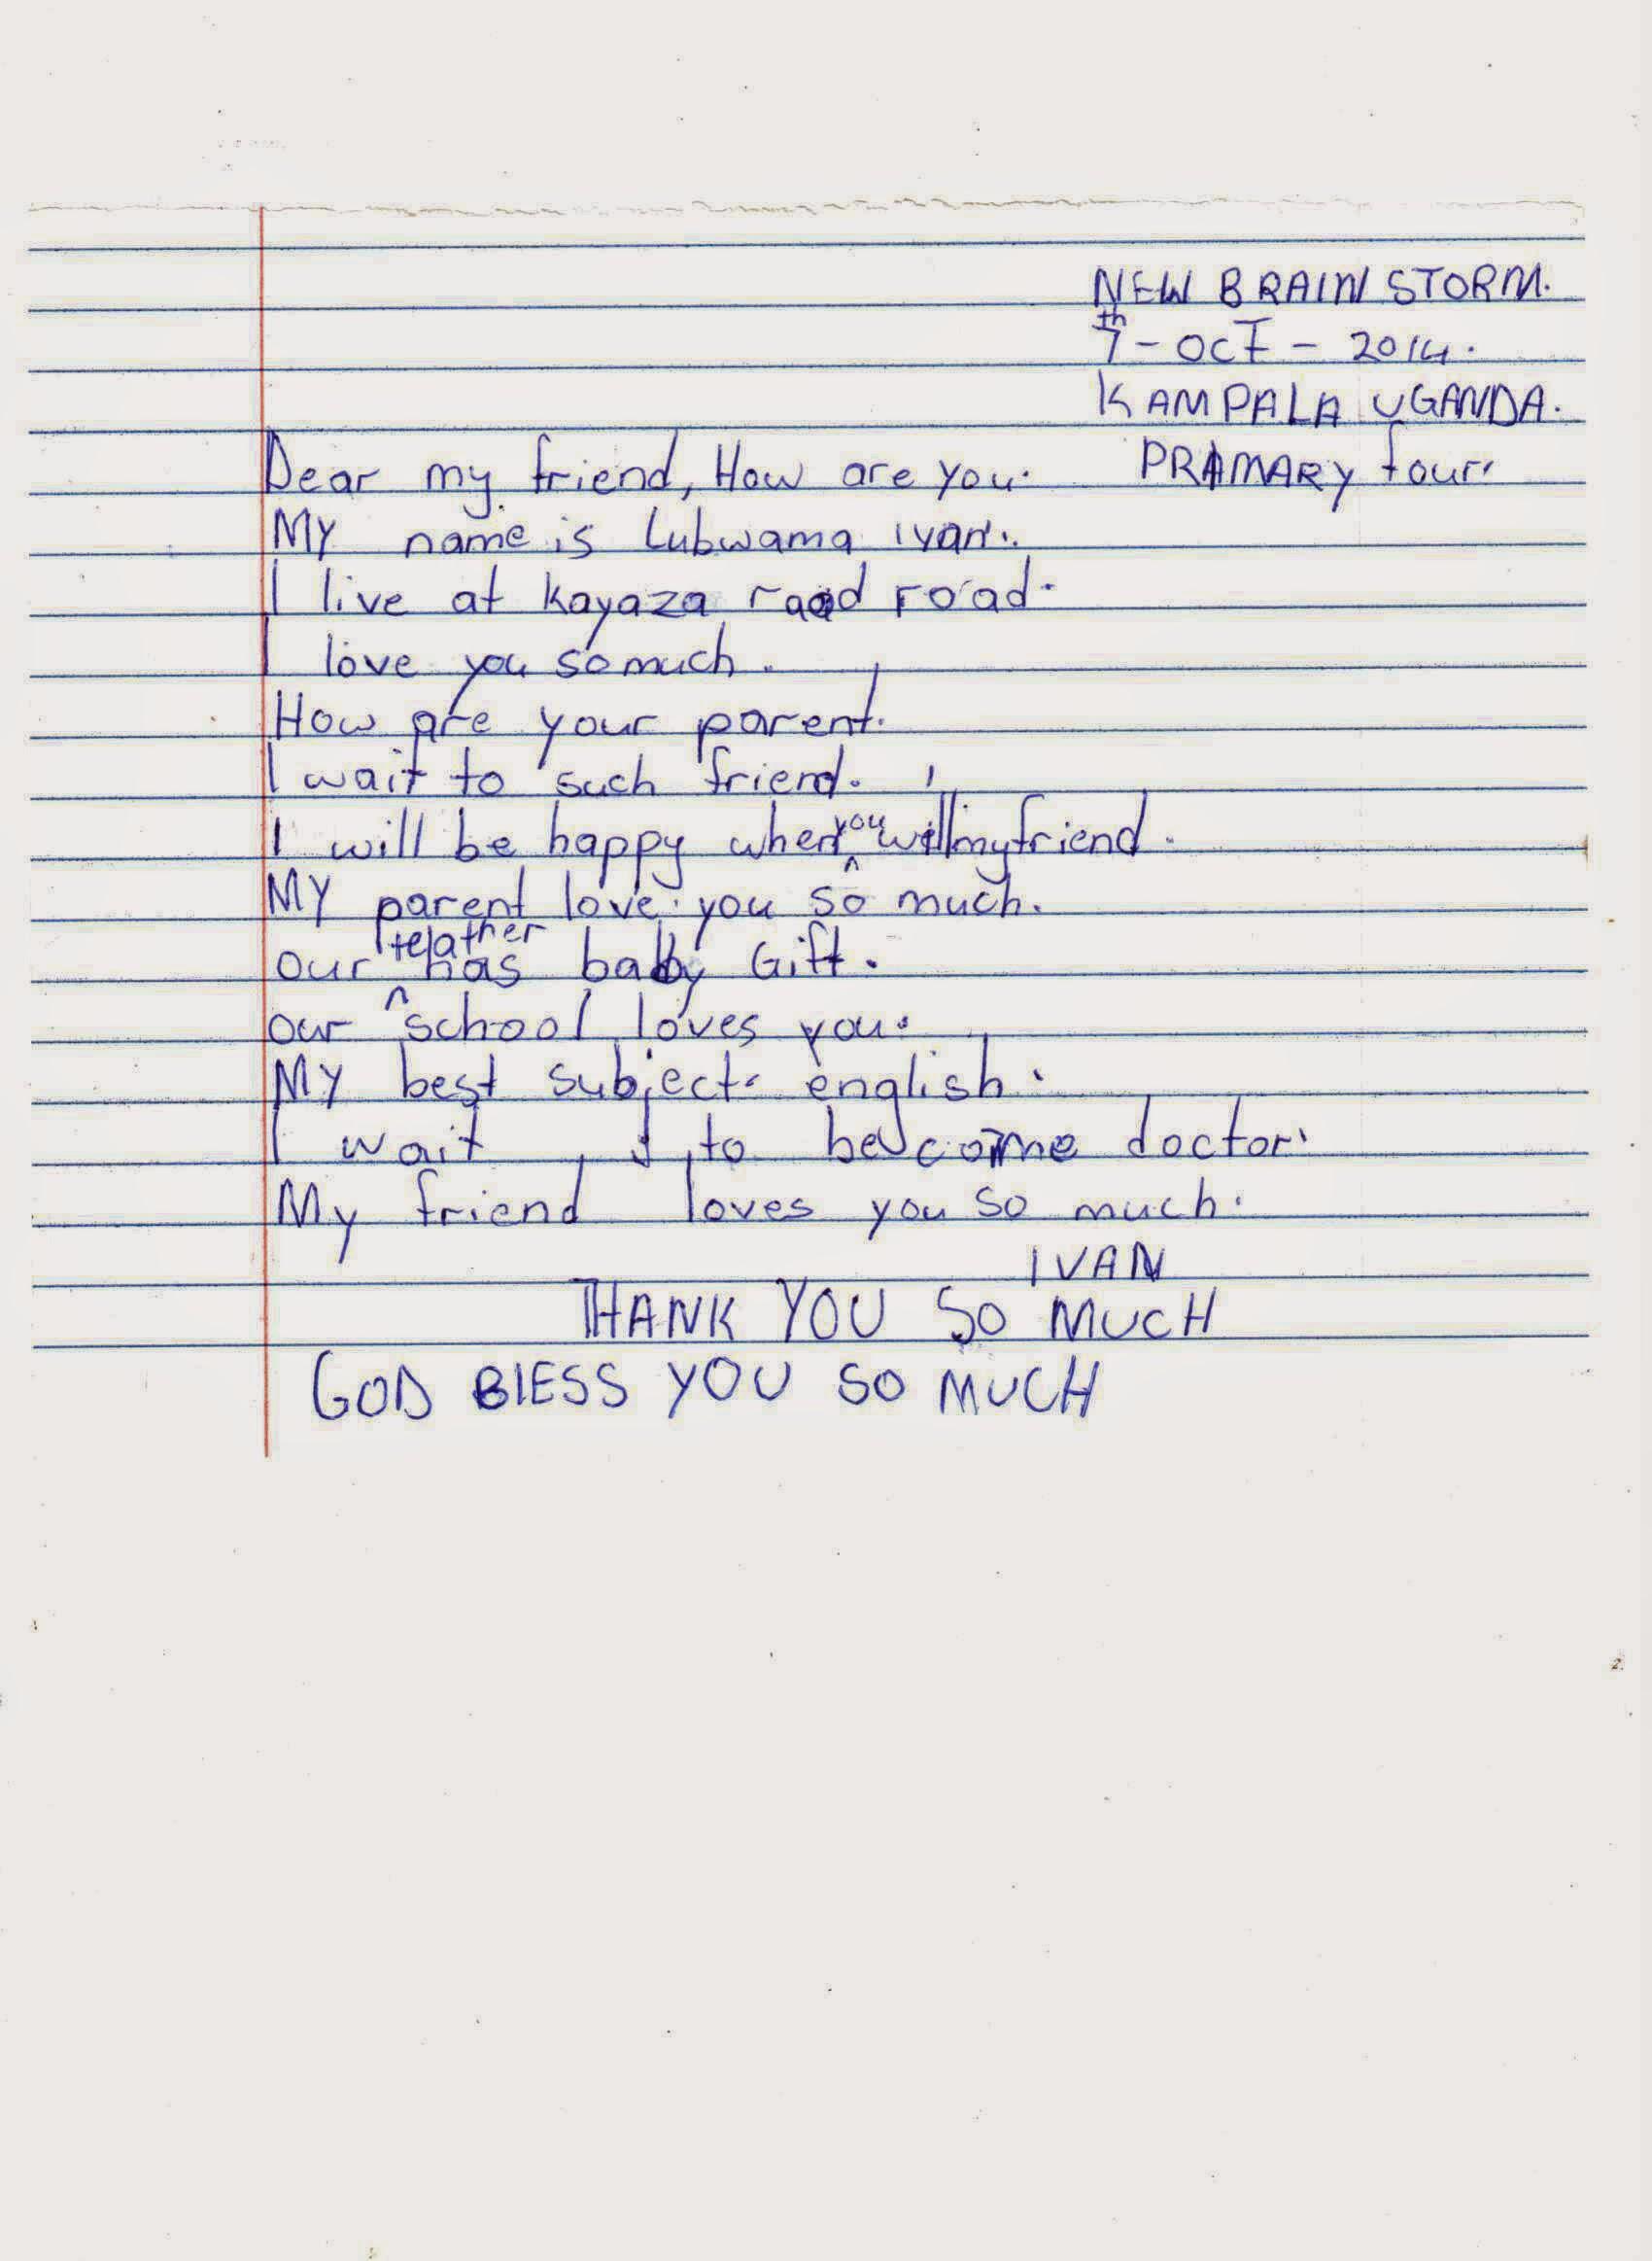 NEW BRAIN STORM.
7th - OCT - 2014.
KAMPALA UGANDA.
Dear my friend, How are you. PRAMARY four.
MY name is Lubwama ivan.
I live at kayaza raod road.
I love you so much.
How are your parent.
I wait to such friend.
I will be happy when you will my friend.
MY parent love you so much.
our telather has baby Gift.
our school loves you.
My best subject english.
I wait to become doctor.
My friend loves you so much.
IVAN
THANK YOU SO MUCH
GOD BlESS YOU SO MUCH